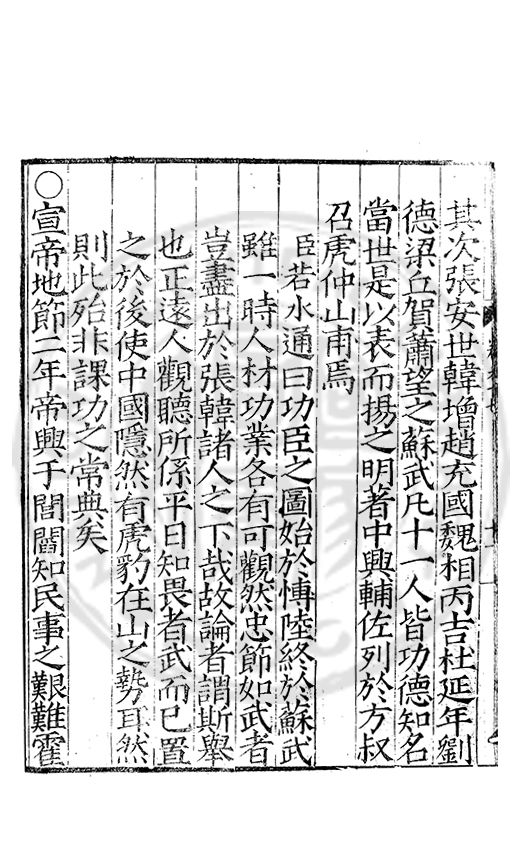 其次張安世韓增趙充國魏相丙吉杜延年劉
德梁丘賀蕭望之蘇武凡十一人皆功德知名
當世是以表而揚之明著中興輔佐列於方叔
召虎仲山甫焉
臣若水通曰功臣之圖始於博陸終於蘇武
雖一時人材功業各有可觀然忠節如武者
豈盡出於張韓諸人之下哉故論者謂斯舉
也正遠人觀聽所係平日知畏者武而已置
之於後使中國隱然有虎豹在山之勢耳然
則此殆非課功之常典矣
○宣帝地節二年帝興于閭閻知民事之艱難霍